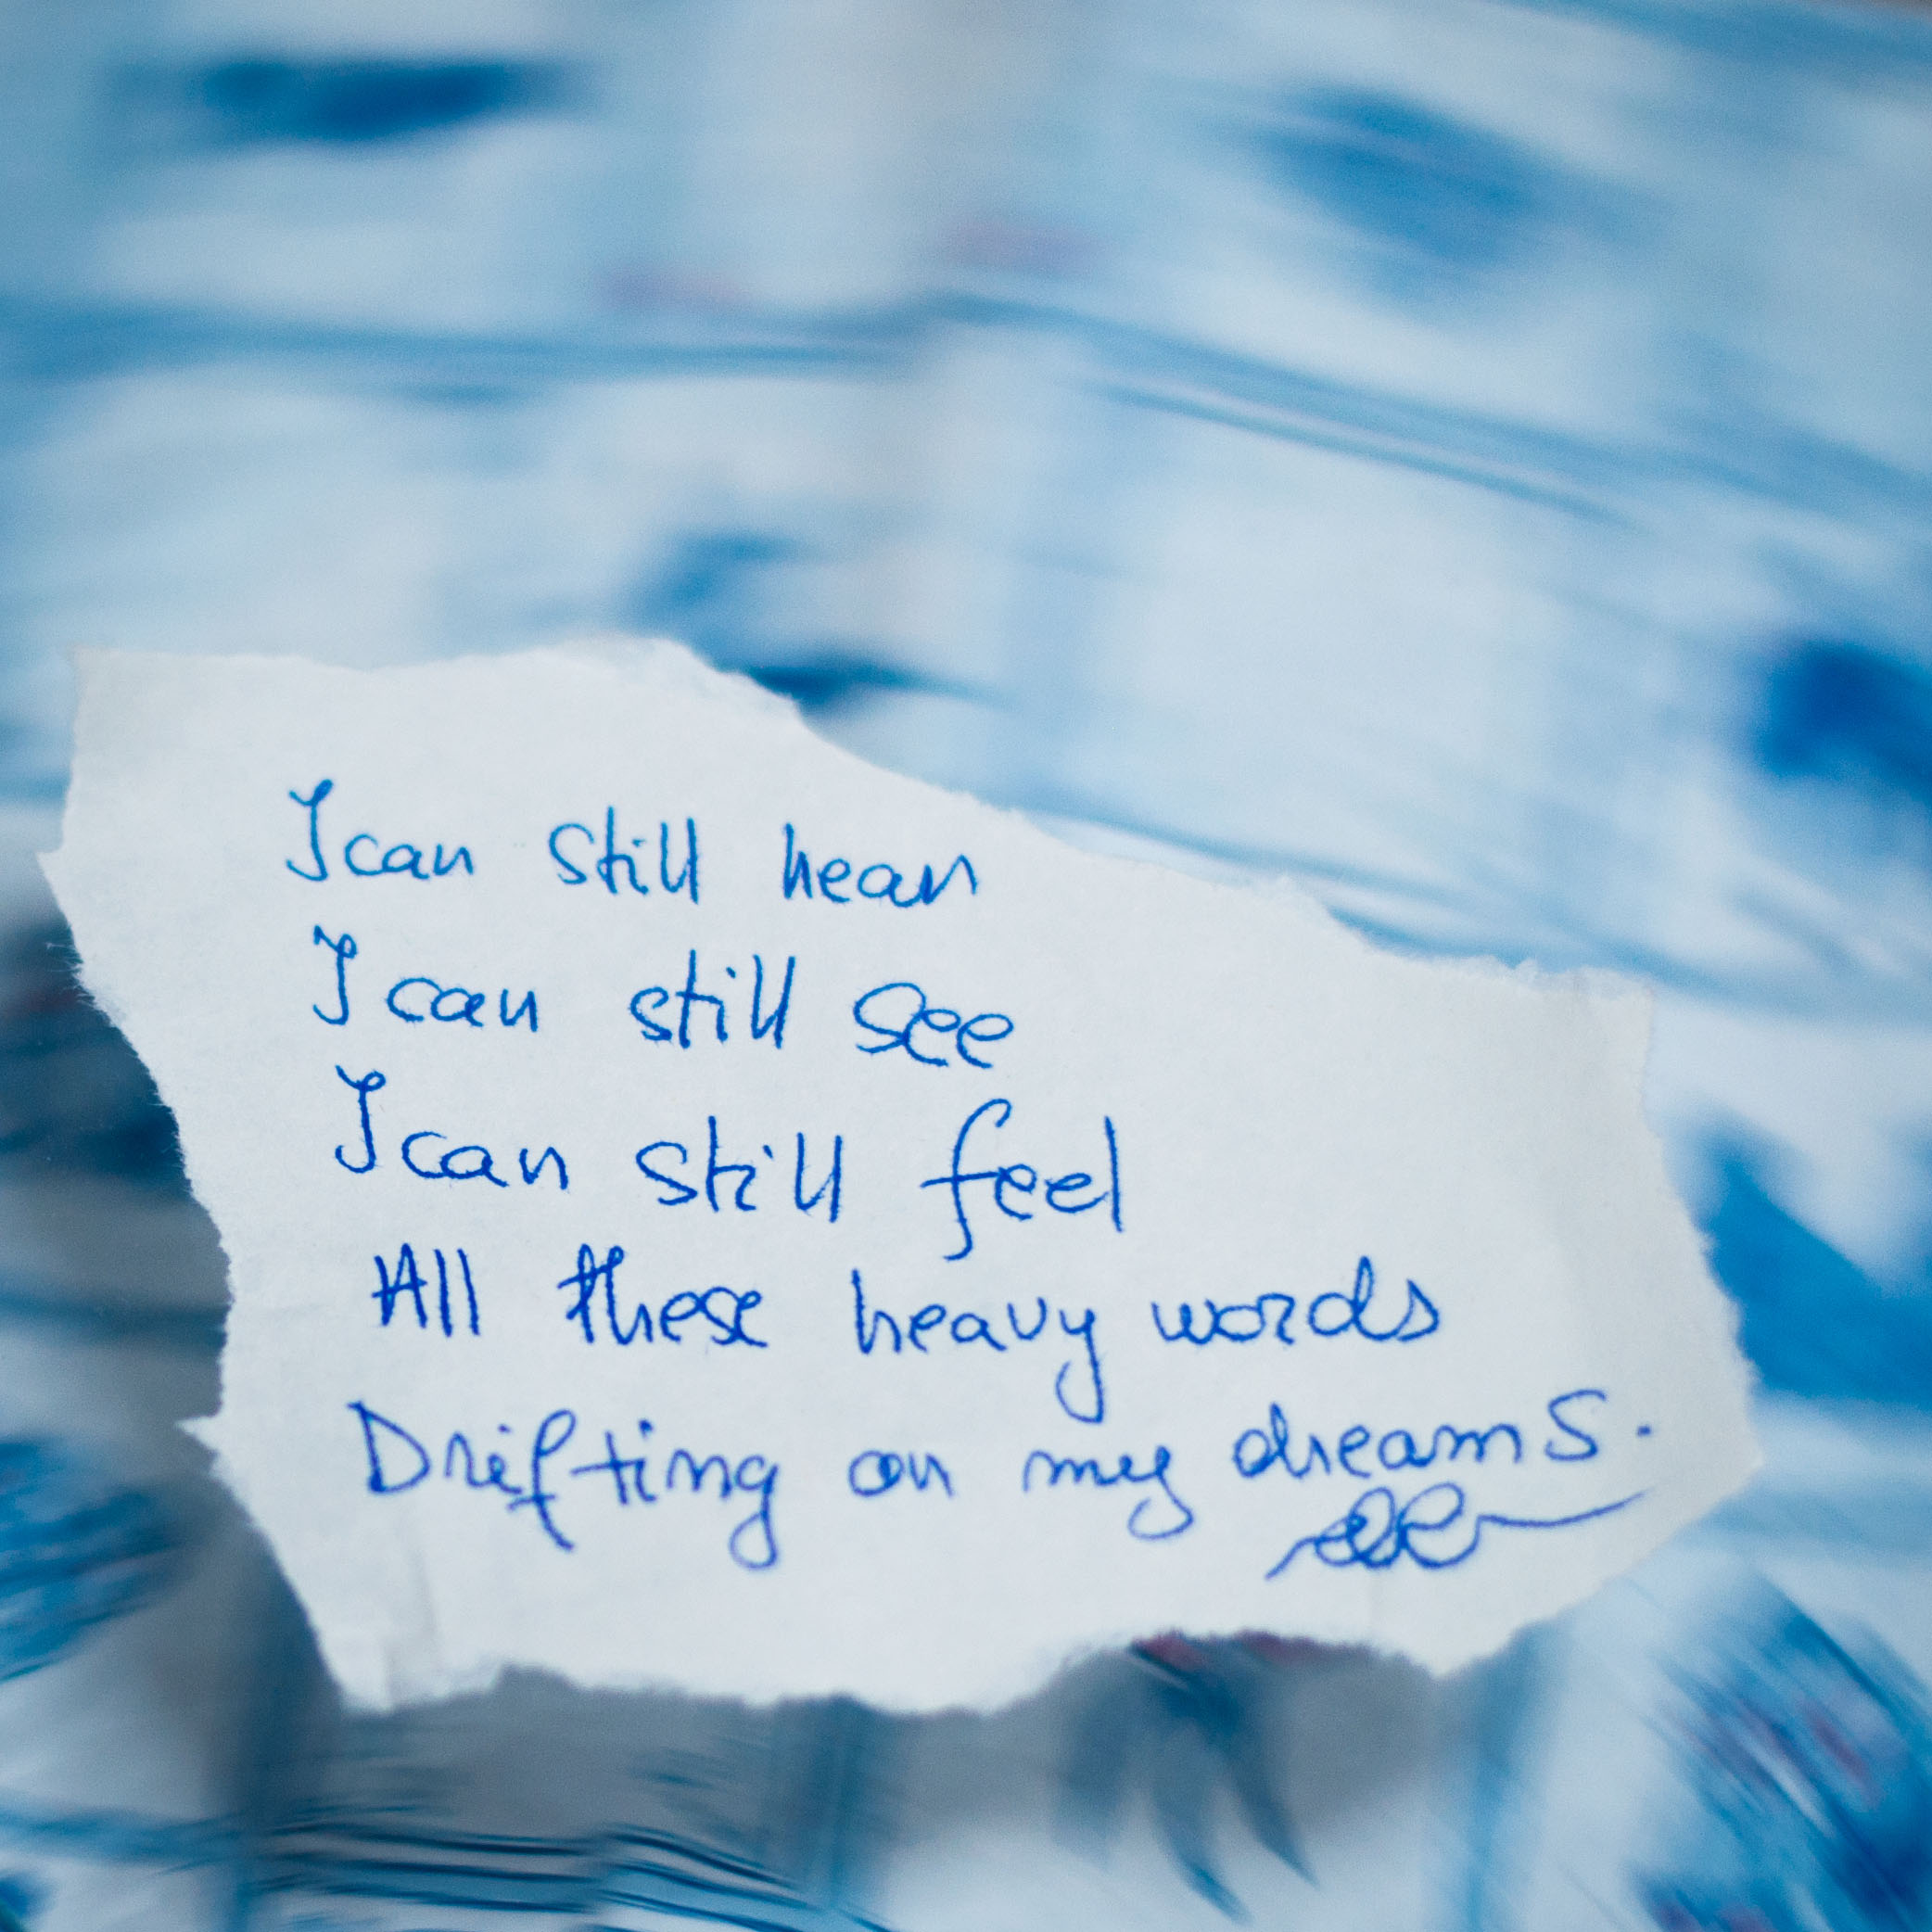 I can still hear
I can still see
I can still feel
All these heavy words
Drifting on my dreams.